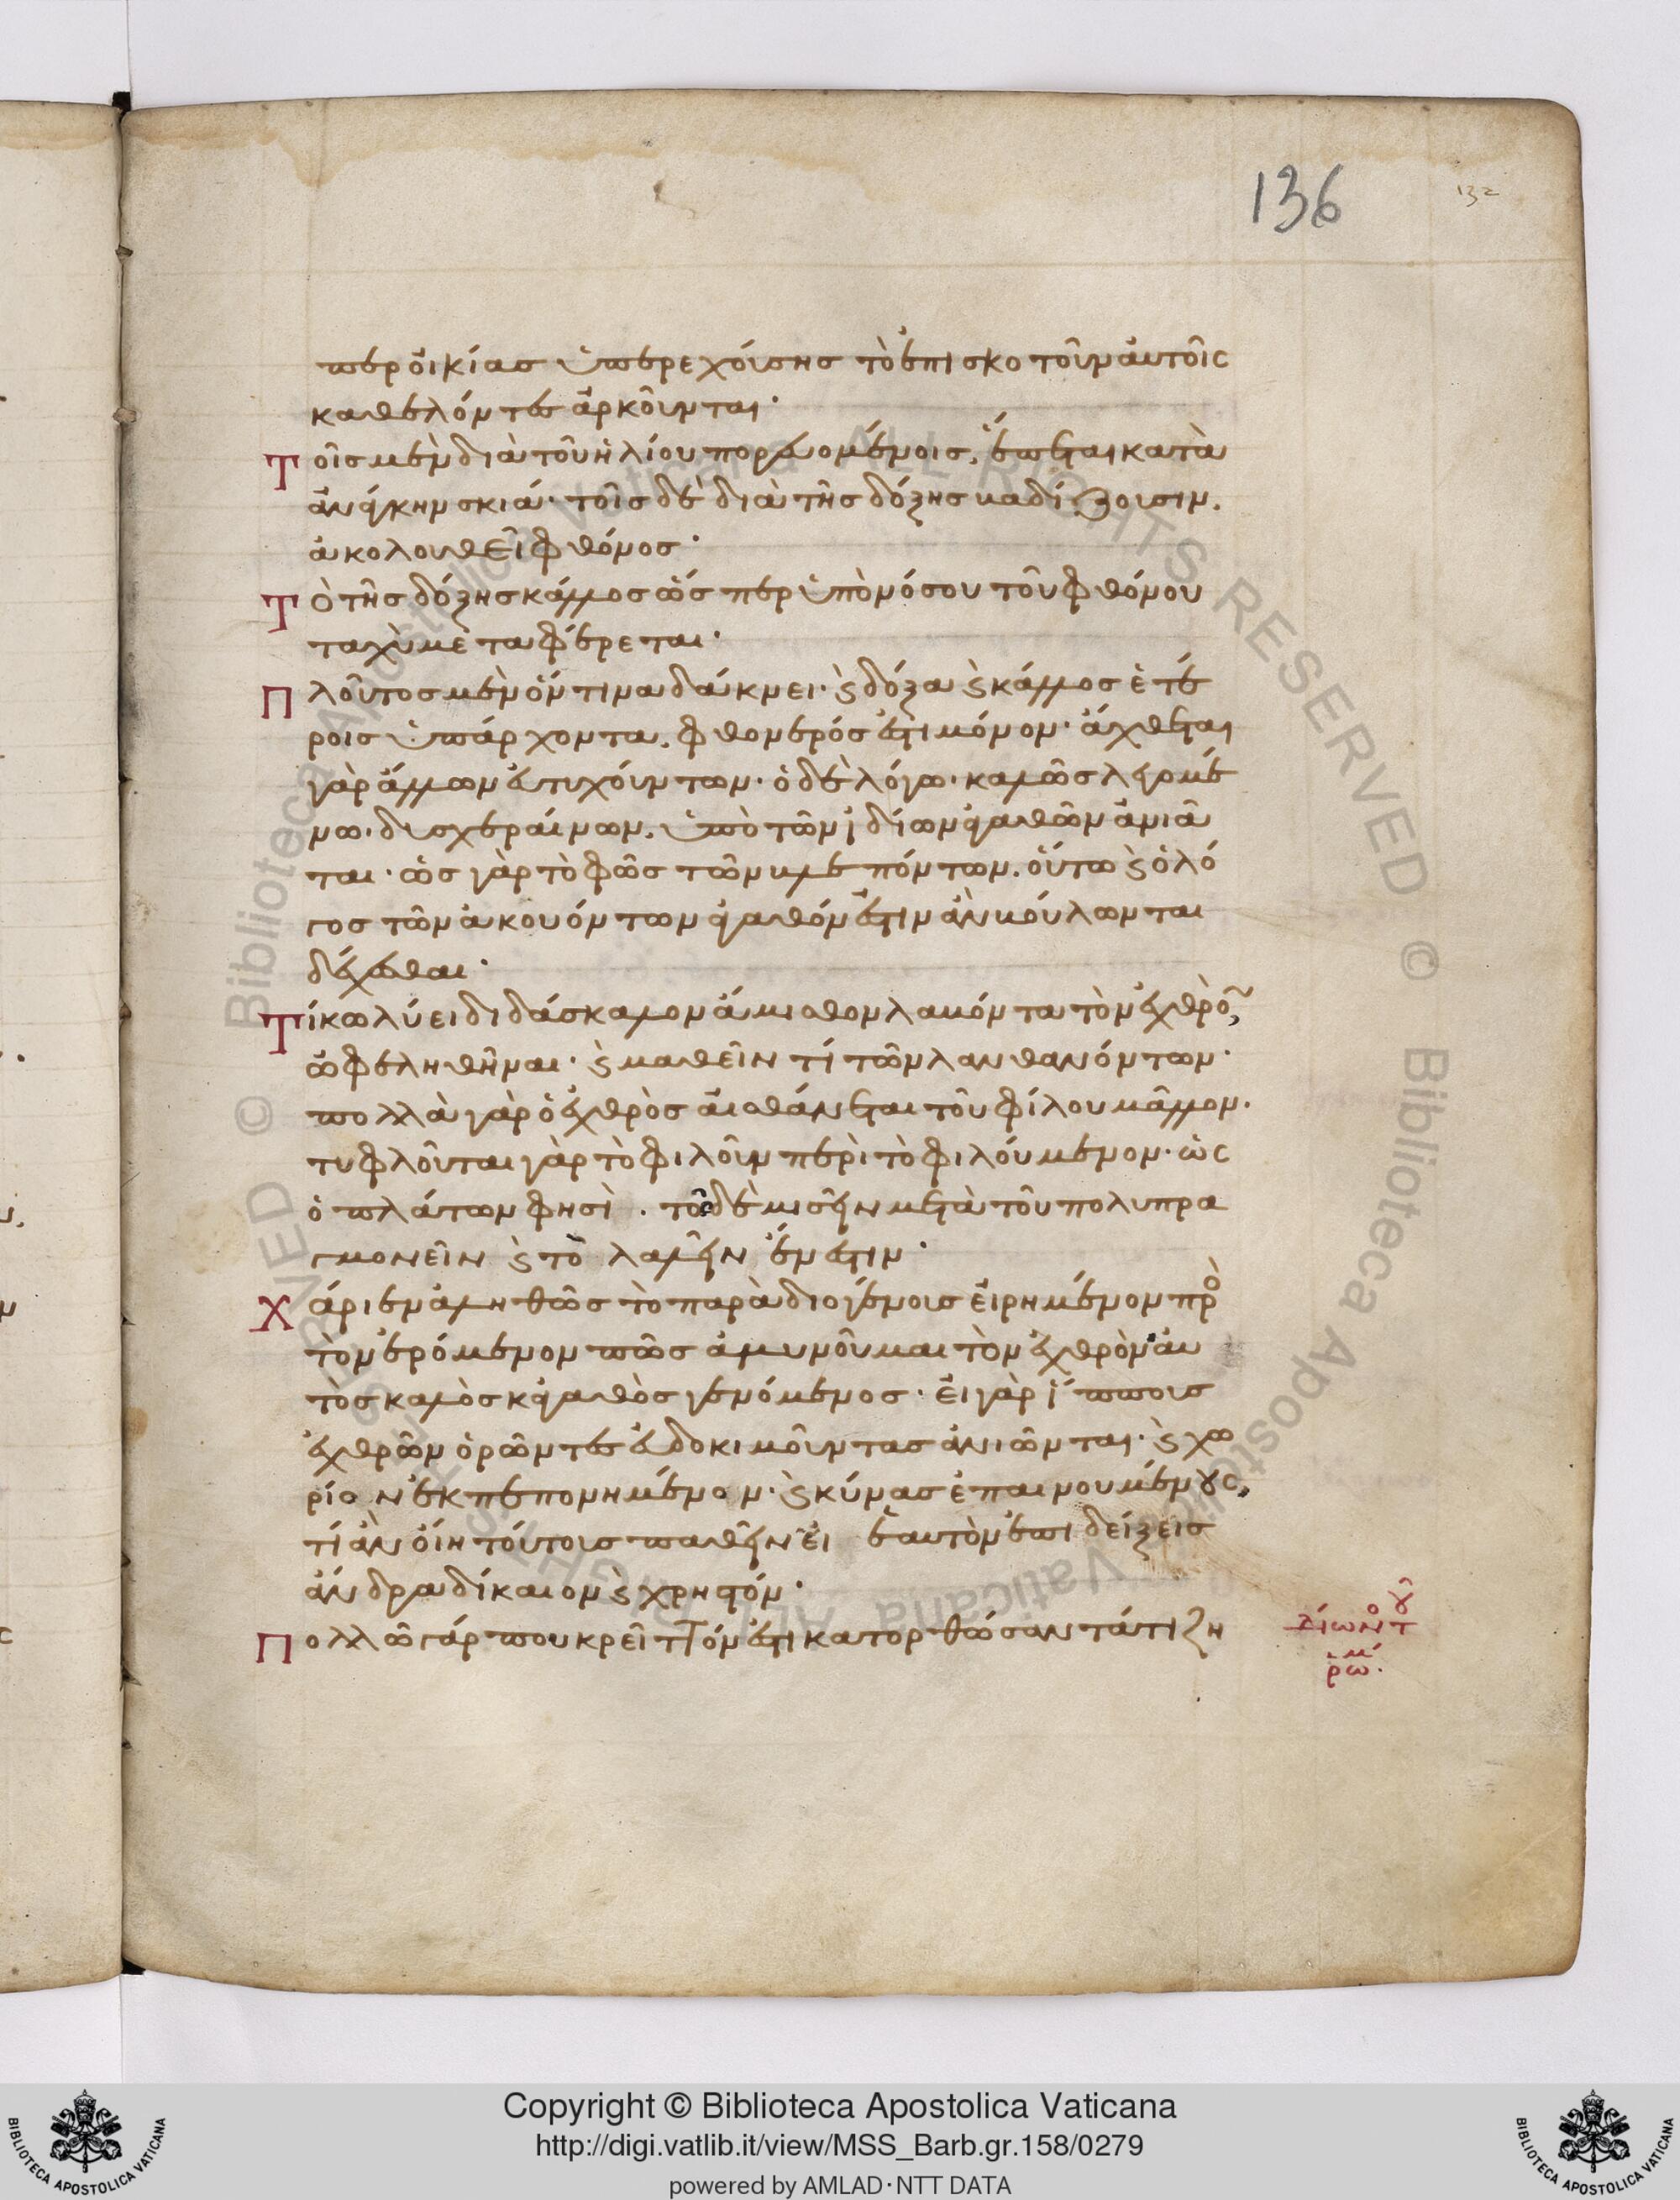 136
132
περ οἰκίας ὑπερεχούσης τὸ ἐπισκοτοῦν αὐτοῖς
καθελόντες ἀρκοῦνται·
Τοῖς μὲν διὰ τοῦ ἡλίου πορευομένοις, ἕπεται κατὰ
ἀνάγκην σκιά· τοῖς δὲ διὰ τῆς δόξης βαδίζουσιν,
ἀκολουθεῖ φθόνος·
Τὸ τῆς δόξης κάλλος ὥσπερ ὑπὸ νόσου τοῦ φθόνου
ταχὺ μεταφέρεται·
Πλοῦτος μὲν ὅντινα δάκνει· ϗ δόξα ϗ κάλλος ἑτέ
ροις ὑπάρχοντα, φθονερός ἐστι μόνον· ἄχθεται
γὰρ ἄλλων εὐτυχούντων· ὁ δὲ λόγω· καλῶς λεγομέ
νω· δυσχεραίνων, ὑπὸ τῶν ἰδίων ἀγαθῶν ἀνιᾶ
ται· ὡς γὰρ τὸ φῶς τῶν βλεπόντων, οὕτω ϗ ὁ λό
γος τῶν ἀκουόντων ἀγαθόν ἐστιν ἂν βούλωνται
δέχεσθαι·
Τί κωλύει διδάσκαλον ἄμισθον λαβόντα τὸν ἐχθρὸν,
ὠφεληθῆναι· ϗ μαθεῖν τί τῶν λανθανόντων·
πολλὰ γὰρ ὁ ἐχθρὸς αἰσθάνεται τοῦ φίλου μᾶλλον·
τυφλοῦται γὰρ τὸ φιλοῦν περὶ τὸ φιλούμενον· ὡς
ὁ πλάτων φησὶ. τῶ δὲ μισεῖν μετὰ τοῦ πολυπρα
γμονεῖν ϗ τὸ λαλεῖν ἔνεστιν·
Χάριεν ἀληθῶς τὸ παρὰ διογένοις εἰρημένον πρὸ
τὸν ἐρόμενον πῶς ἀμυνοῦμαι τὸν ἐχθρὸν αὐ
τὸς καλὸς κἀγαθὸς γενόμενος· εἰ γὰρ ἵπποις
ἐχθρῶν ὁρῶντες εὐδοκιμοῦντας ἀνιῶνται· ϗ χω
ρίον ἐκπεπονημένον· ϗ κύνας ἐπαινουμένους,
τί ἂν οἴη τούτοις παθεῖν εἰ ἑαυτὸν ἐπιδείξεις
ἄνδρα δίκαιον ϗ χρηστόν·
Πολλῶ γάρ που κρεῖττόν ἐστι κατορθώσαντά τι ζη
Δίωνο τ
ῥωμ.
Copyright © Biblioteca Apostolica Vaticana
http://digi.vatlib.it/view/MSS_Barb.gr.158/0279
powered by AMLAD·NTT DATA